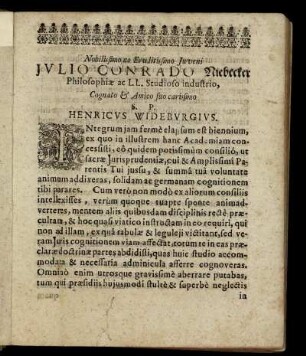 Nobilissimo ac Eruditissimo Juveni
JVLIO CONRADO Niebecker
Philosophiæ ac LL. Studioso industrio,
Cognato & Amico suo carissimo
S. P.
HENRICVS WIDEBVRGIVS.
INtegrum jam fermè elapsum est biennium,
ex quo in illustrem hanc Academiam con-
cessisti, eô quidem potissimùm consiliô, ut
sacræ Jurisprudentiæ, cui & Amplissimi Pa-
rentis Tui jussu, & summâ tuâ voluntate
animum addixeras, solidam ac germanam cognitionem
tibi parares. Cum verò non modò ex aliorum consiliis
intellexisses, verùm quoque suapte sponte animad-
verteres, mentem aliis quibusdam disciplinis rectè præ-
cultam, & hoc quasi viatico instructam in eo requiri, qui
non ad illam, ex quâ rabulæ & leguleji victitant, sed ve-
ram Juris cognitionem viam affectat, totum te in eas præ-
claræ doctrinæ partes abdidisti, quas huic studio accom-
modata & necessaria adminicula afferre cognoveras.
Omninò enim utrosque gravissimè aberrare putabas,
tum qui præsidiis hujusmodi stultè & superbè neglectis
in